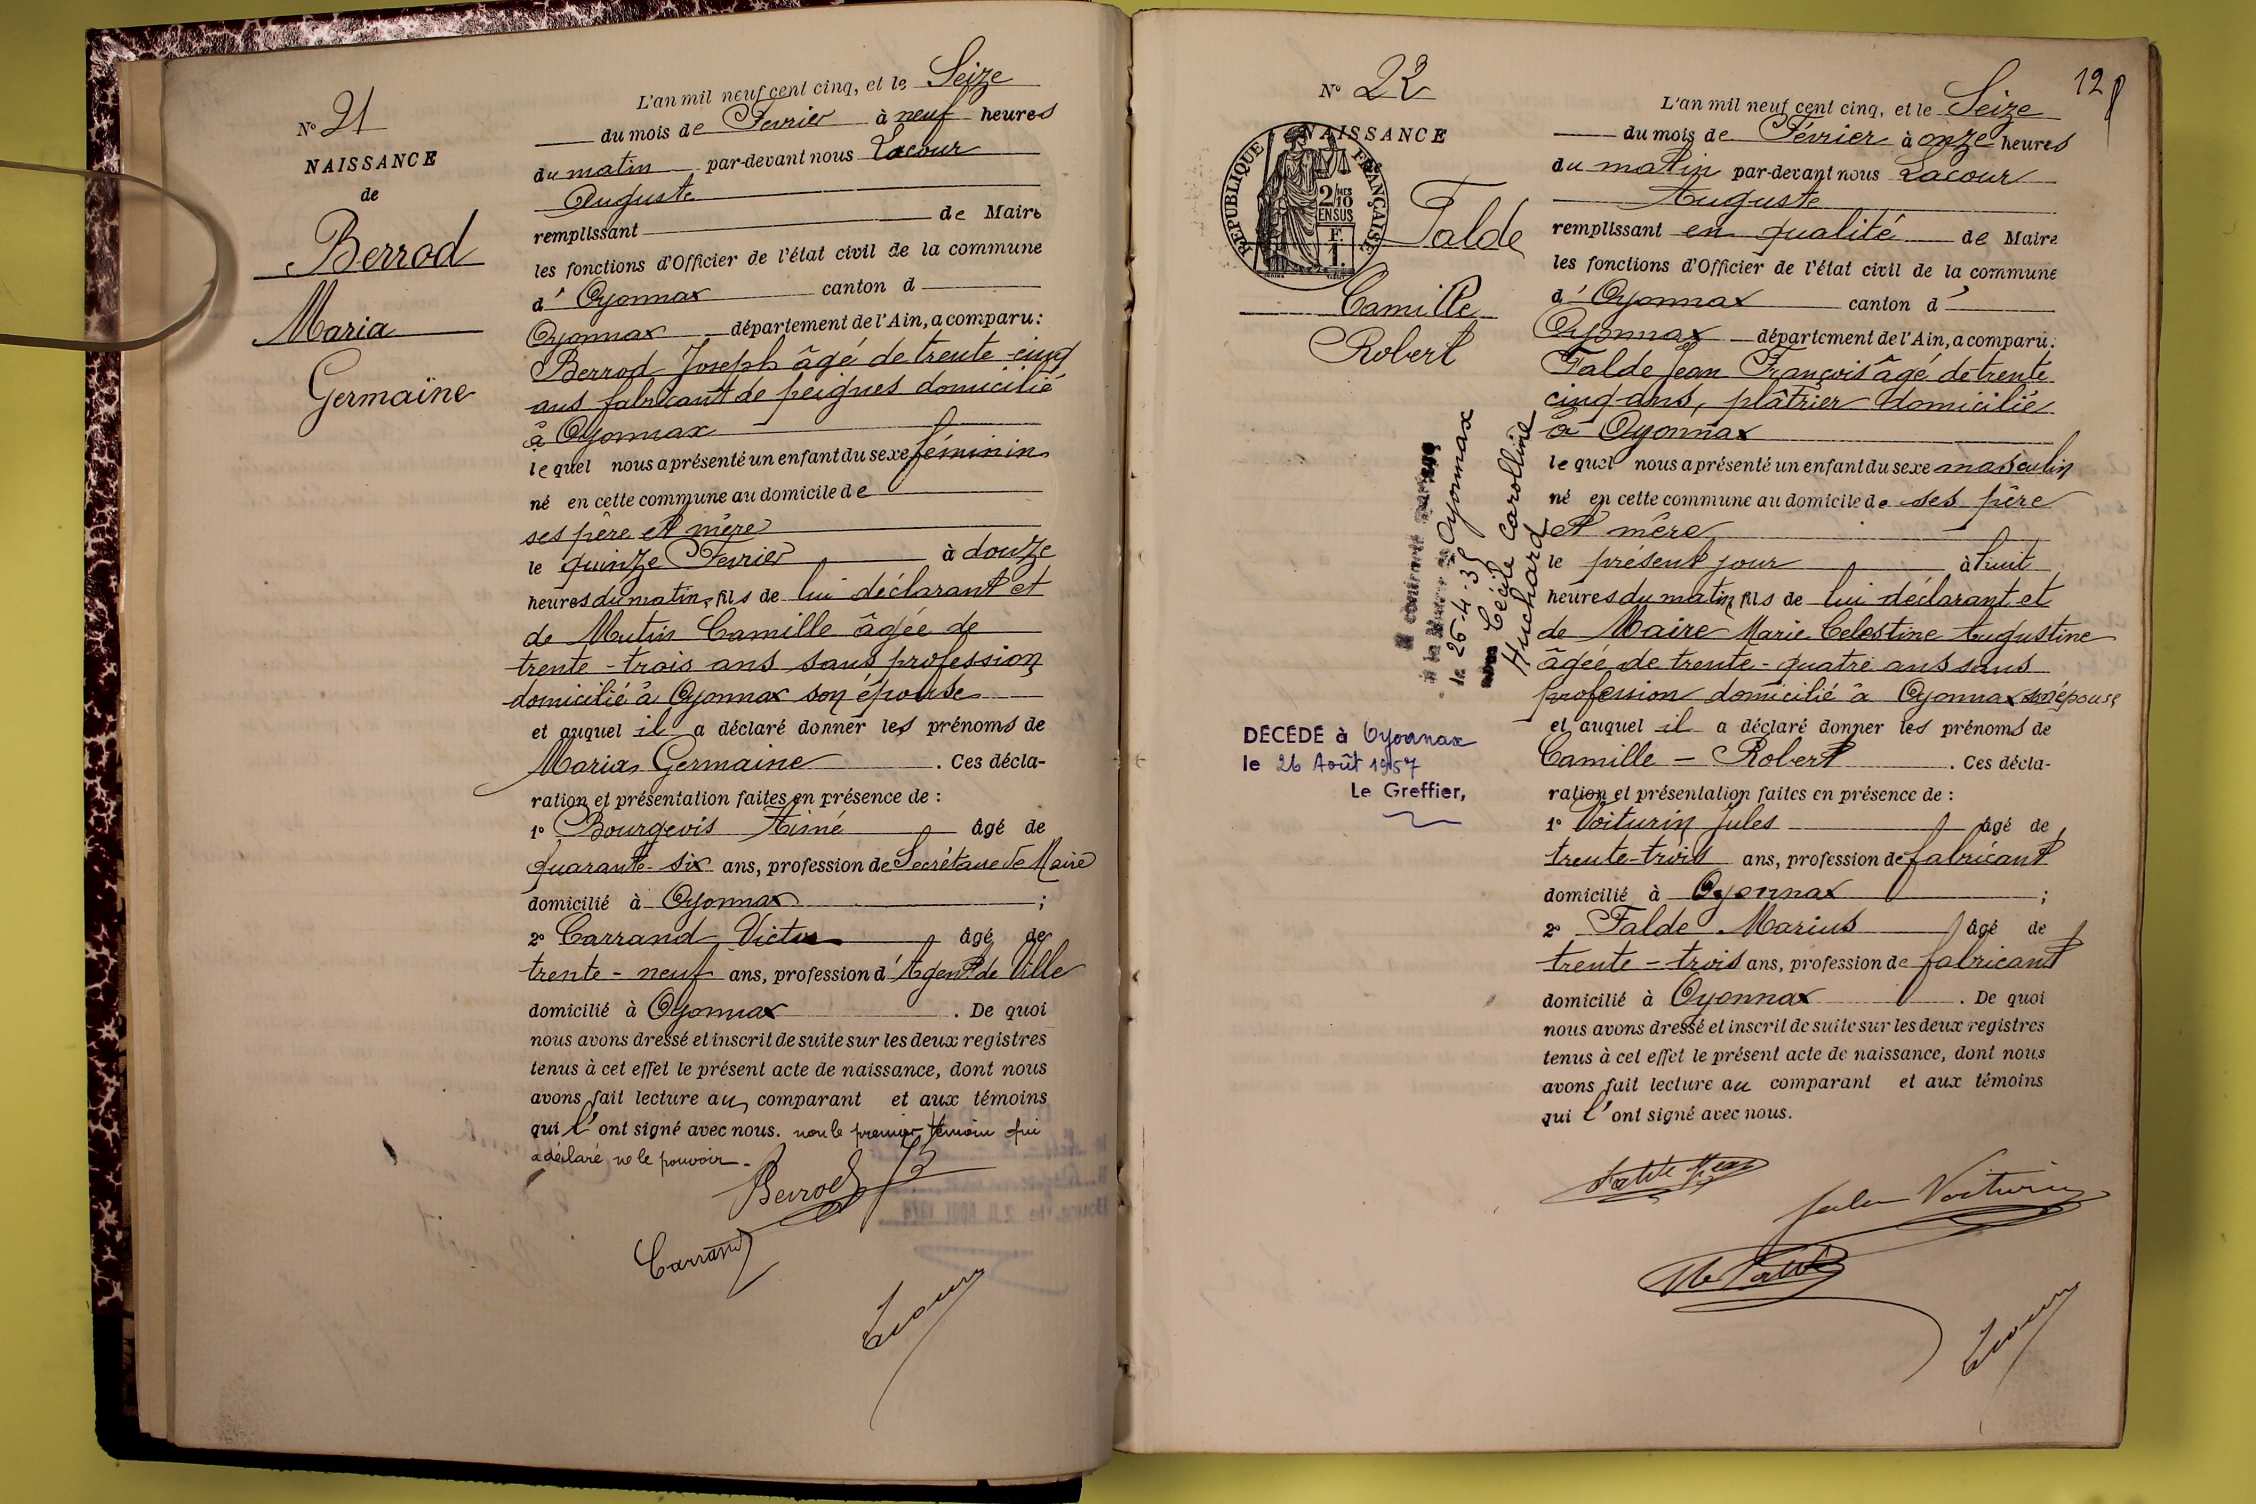 N° 21
NAISSANCE
de
Berrod
Maria
Germaine
L'an mil neuf cent cinq, et le Seize
du mois de Fevrier à neuf heures
du matin par-devant nous Lacour
Auguste
remplissant de Maire
les fonctions d'Officier de l'état civil de la commune
d' Oyonnax canton d
Oyonnax département de l'Ain, a comparu:
Berrod Joseph âgé de trente-cinq
ans fabricant de peignes domicilié
à Oyonnax
lequel nous a présenté un enfant du sexe féminin
né en cette commune au domicile de
ses père et mère
le quinze Fevrier à douze
heures du matin, fils de lui déclarant et
de Mutin Camille âgée de
trente-trois ans sans profession
domicilié à Oyonnax son épouse
et auquel il a déclaré donner les prénoms de
Maria, Germaine . Ces décla-
ration et présentation faites en présence de :
1° Bourgeois Aimé âgé de
quarante-six ans, profession de Secrétaire de Mairie
domicilié à Oyonnax ;
2° Carrand Victor âgé de
trente-neuf ans, profession d'Agent de Ville
domicilié à Oyonnax . De quoi
nous avons dressé et inscrit de suite sur les deux registres
tenus à cet effet le présent acte de naissance, dont nous
avons fait lecture au comparant et aux témoins
qui l'ont signé avec nous. non le premier témoin qui
a déclaré ne le pouvoir.
Berrod J
Carrand
Lacour
128
N° 22
NAISSANCE
REPUBLIQUE FRANÇAISE
2/10 EN SUS
F. 1.
Falde
Camille
Robert
le 26-4-35 Oyonnax
Cécile Carolline
Huchard
DECEDE à Oyonnax
le 26 Août 1957
Le Greffier,
L'an mil neuf cent cinq, et le Seize
du mois de Février à onze heures
du matin par-devant nous Lacour
Auguste
remplissant en qualité de Maire
les fonctions d'Officier de l'état civil de la commune
d' Oyonnax canton d'
Oyonnax département de l'Ain, a comparu:
Falde Jean François âgé de trente
cinq ans, plâtrier domicilié
à Oyonnax
lequel nous a présenté un enfant du sexe masculin
né en cette commune au domicile de ses père
et mère
le présent jour à huit
heures du matin, fils de lui déclarant et
de Maire Marie Celestine Augustine
âgée de trente-quatre ans sans
profession domicilié à Oyonnax son épouse
et auquel il a déclaré donner les prénoms de
Camille - Robert . Ces décla-
ration et présentation faites en présence de :
1° Voiturin Jules âgé de
trente-trois ans, profession de fabricant
domicilié à Oyonnax ;
2° Falde Marius âgé de
trente-trois ans, profession de fabricant
domicilié à Oyonnax . De quoi
nous avons dressé et inscrit de suite sur les deux registres
tenus à cet effet le présent acte de naissance, dont nous
avons fait lecture au comparant et aux témoins
qui l'ont signé avec nous.
Falde Jean
Jules Voiturin
M Falde
Lacour